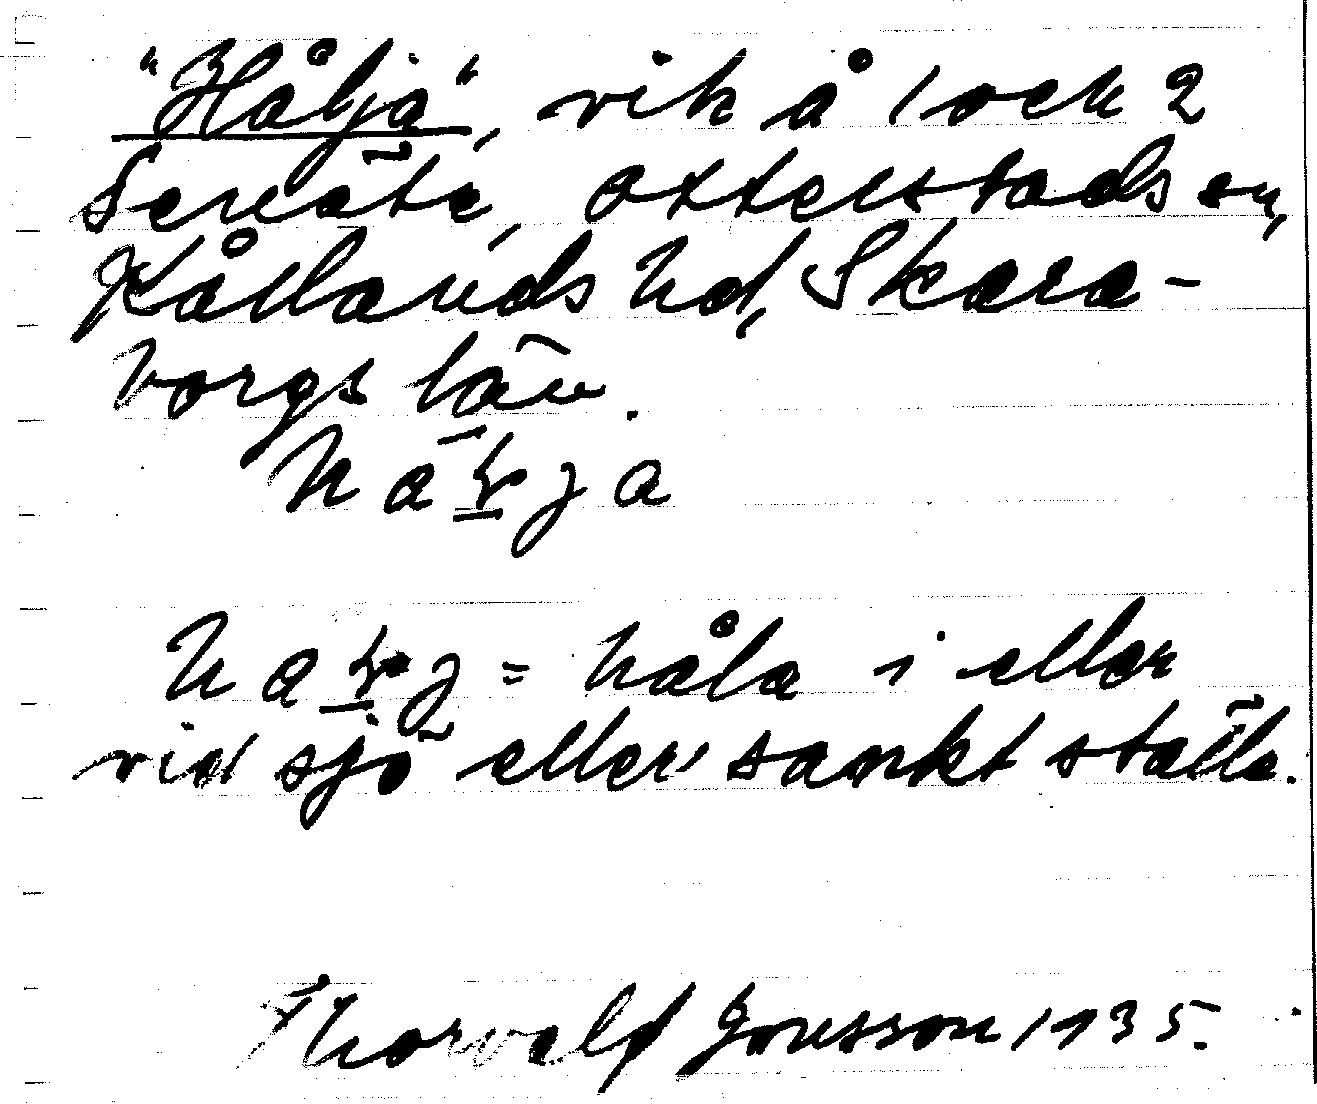 "Hålja", vik å 1 och 2
Senäte, Otterstads sn,
Kållands hd, Skara-
borgs län.
håla i eller
vid sjö eller sankt ställe.
Thorvald Jonsson 1935.